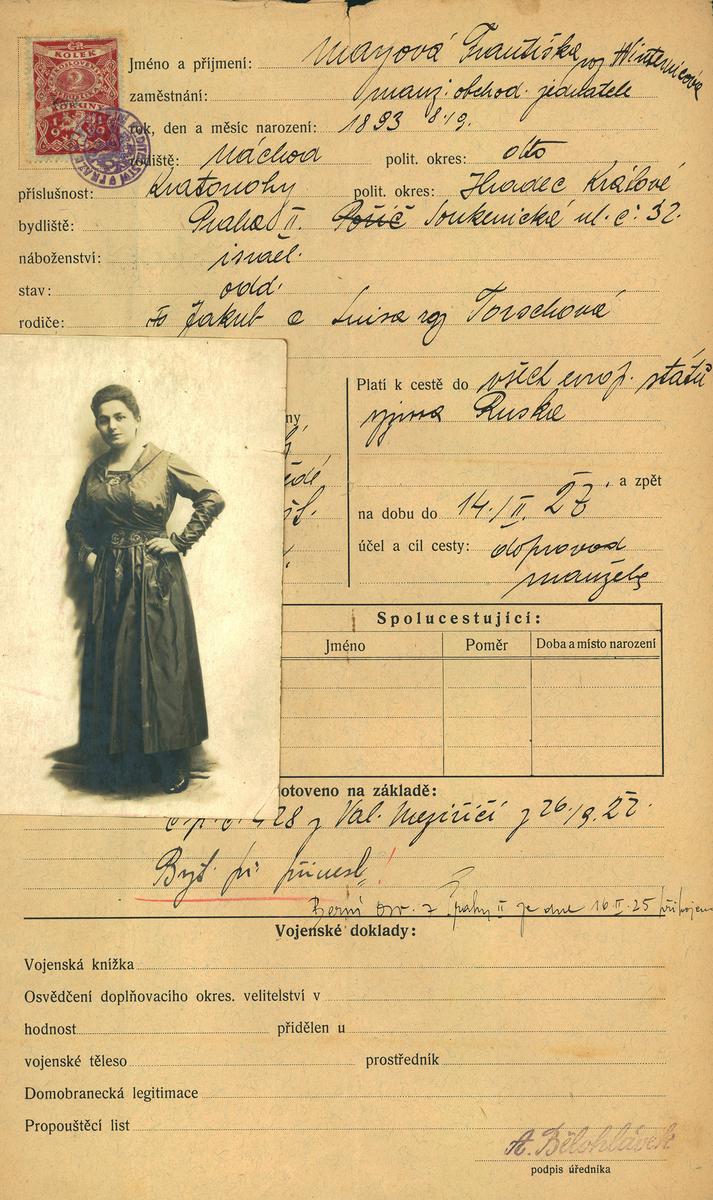 ČR
KOLEK
2
KORUNY
1919
Jméno a příjmení: Mayová Františka roz Winternicová
zaměstnání: manž. obchod. jednatele
rok, den a měsíc narození: 1893 8./9.
rodiště: Náchod polit. okres: otto
příslušnost: Kratonohy polit. okres: Hradec Králové
bydliště: Praha II. Poříč Soukenická ul. č. 32.
náboženství: israel.
stav: odd.
rodiče: Jakub a Luisa roz Torschová
ny
Platí k cestě do všech evrop. států
vyjma Ruska
a zpět
na dobu do 14./II. 27.
účel a cíl cesty: doprovod
manžela
Spolucestující:
Jméno Poměr Doba a místo narození
otoveno na základě:
28 z Val. Meziříčí z 26/9. 22.
Byt. př. přinesl!
Berní z Prahy II je dne 16.II.25 připojen
Vojenské doklady:
Vojenská knížka
Osvědčení doplňovacího okres. velitelství v
hodnost přidělen u
vojenské těleso prostředník
Domobranecká legitimace
Propouštěcí list
A. Bělohlávek
podpis úředníka